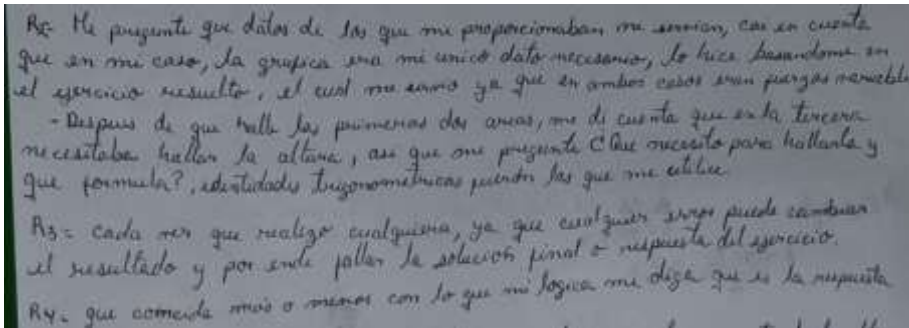 R2= Me pregunte que datos de los que me proporcionaban me servian, cai en cuenta
que en mi caso, la grafica era mi unico dato necesario, lo hice basandome en
el ejercicio resuelto, el cual me sirvio ya que en ambos casos eran fuerzas variables
- Despues de que halle las primeras dos areas, me di cuenta que en la tercera
necesitaba hallar la altura, asi que me pregunte ¿Que necesito para hallarla y
que formula?, identidades trigonometricas fueron las que me utilice.
R3= Cada vez que realizo cualquiera, ya que cualquier error puede cambiar
el resultado y por ende fallar la solución final o respuesta del ejercicio.
R4= que coincida mas o menos con lo que mi logica me diga que es la respuesta